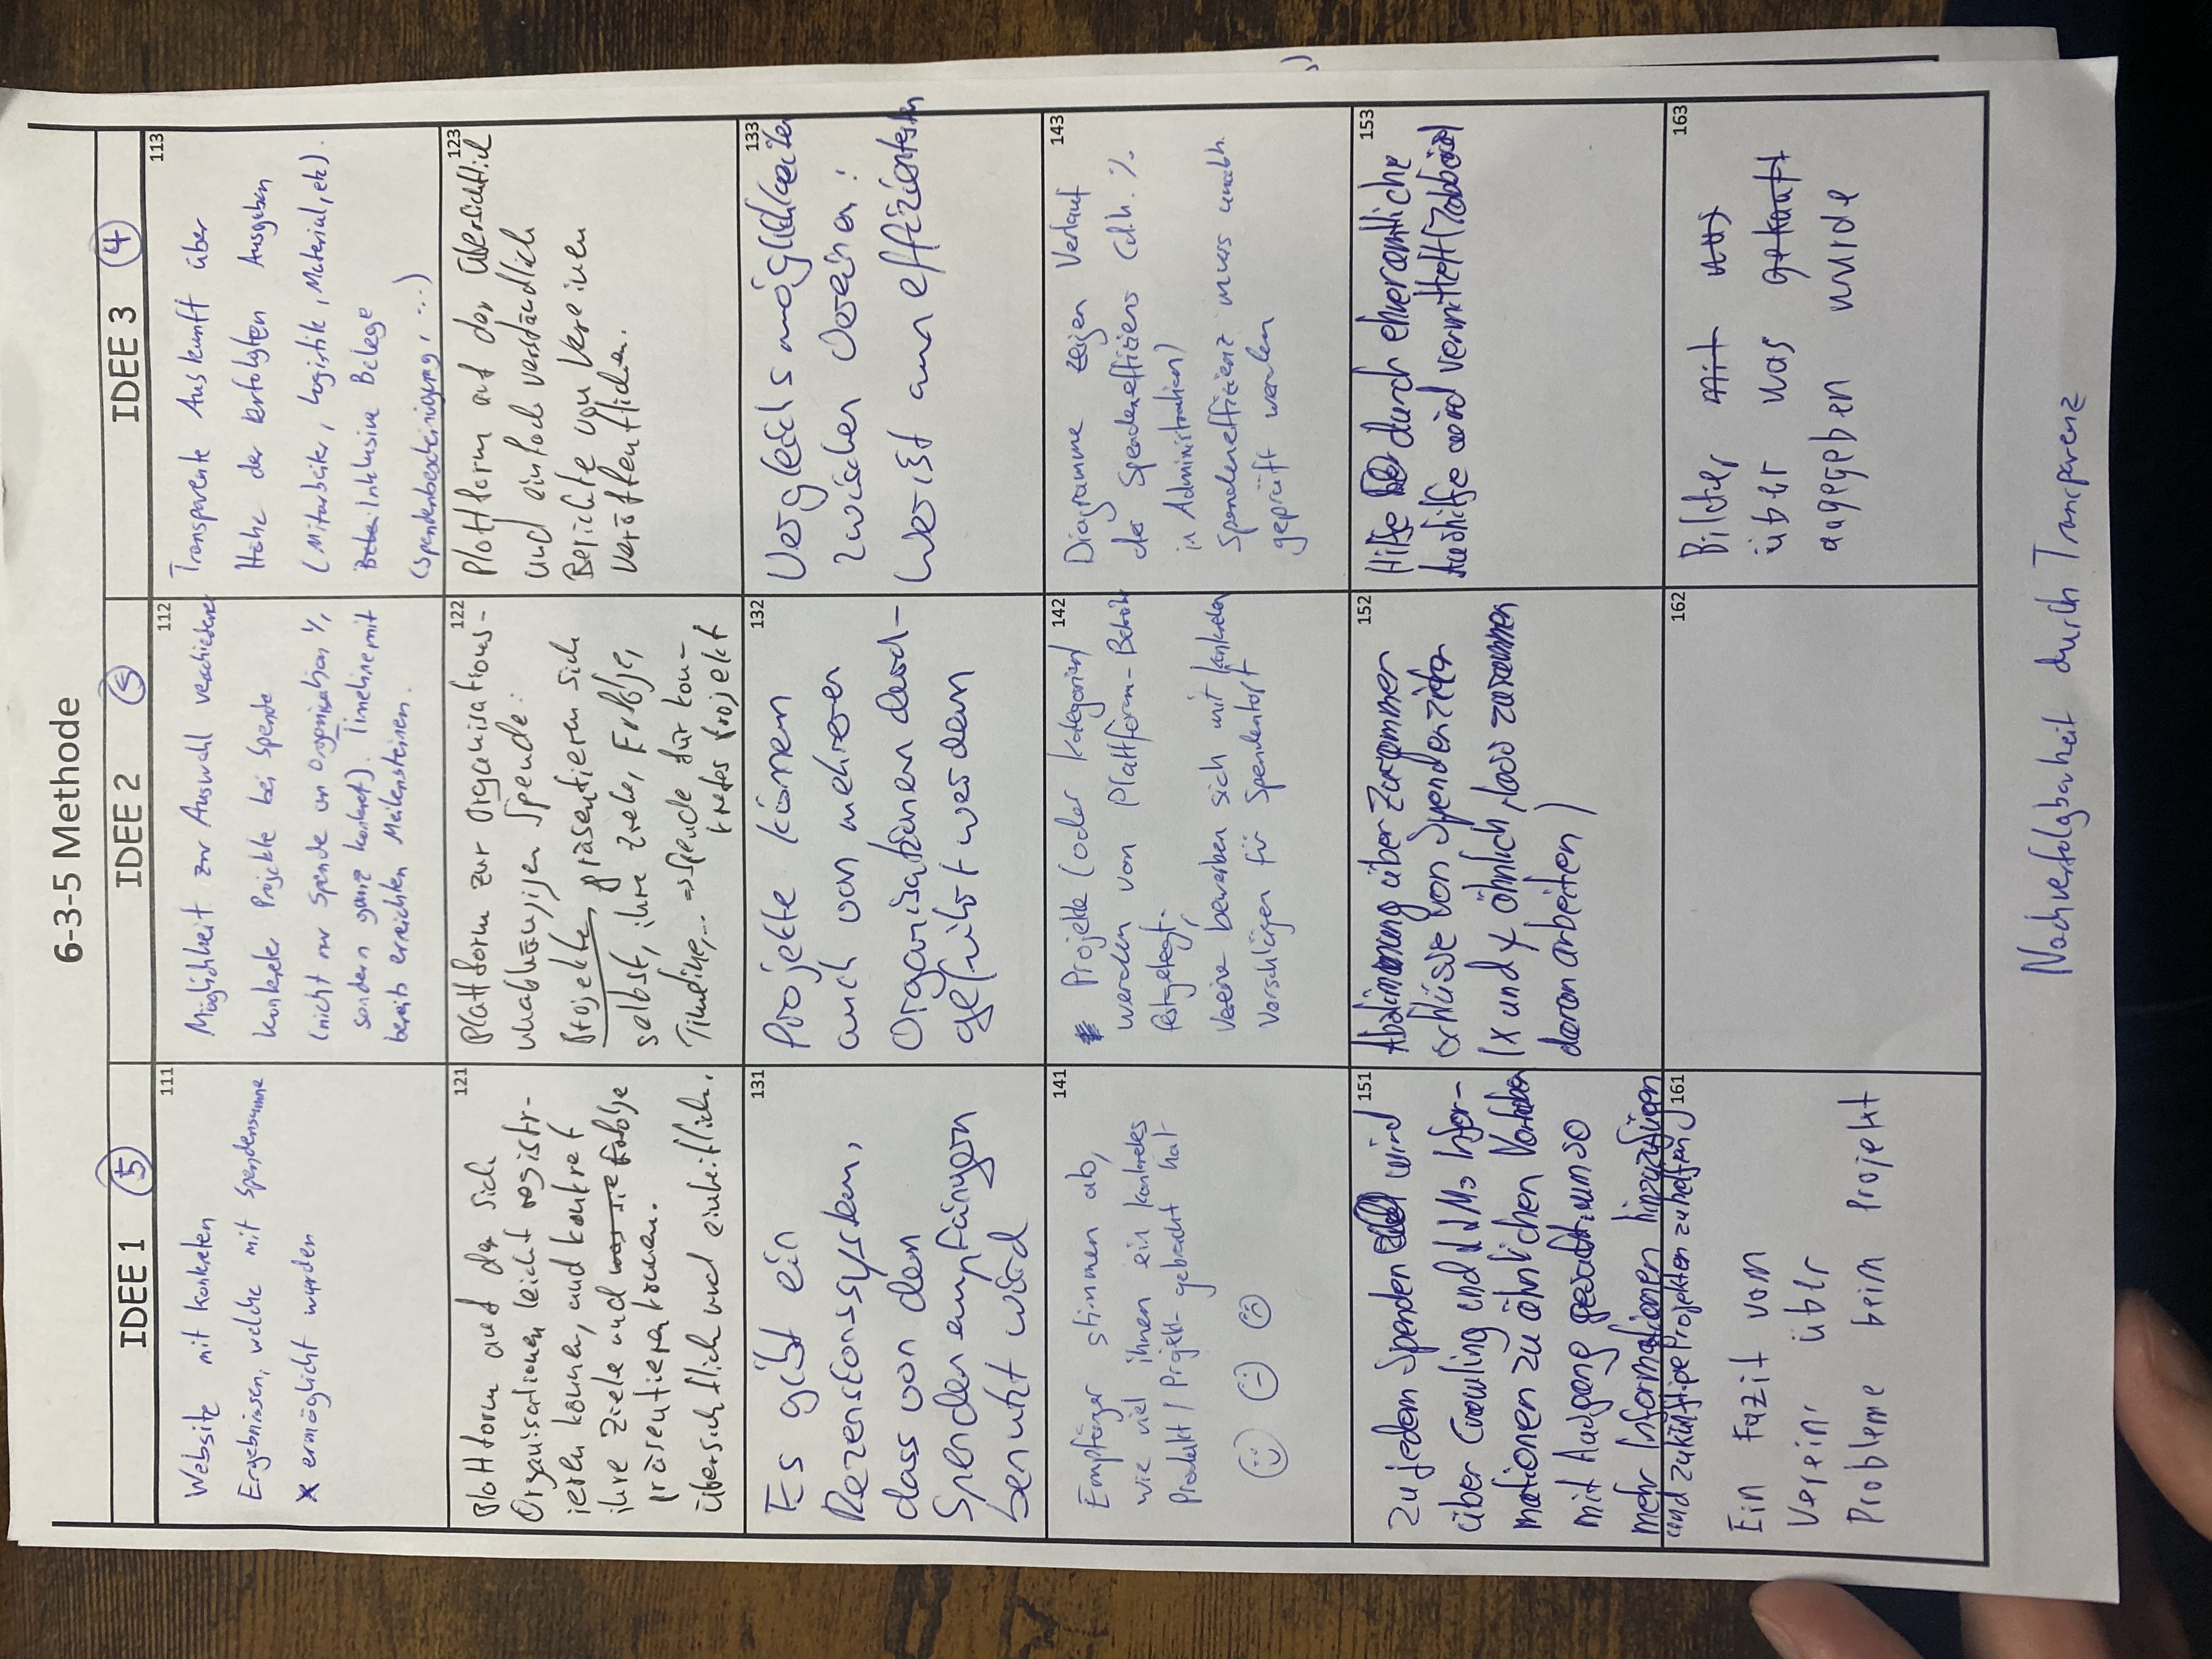 6-3-5 Methode
IDEE 1 5
IDEE 2 5
IDEE 3 4
111
Website mit konkreten
Ergebnissen, welche mit Spendensumme
x ermöglicht wurden
112
Möglichkeit zur Auswahl verschiedener
konkreter Projekte bei Spende
(nicht nur Spende an Organisation
sondern ganz konkret). Timeline mit
bereits erreichten Meilensteinen.
113
Transparente Auskunft über
Höhe der erfolgten Ausgaben
(Mitarbeiter, Logistik, Material, etc).
Inklusive Belege
(Spendenbescheinigung, ...)
121
Plattform auf der sich
Organisationen leicht registr-
ieren können, und konkret
ihre Ziele und was sie Erfolge
präsentieren können.
übersichtlich und einheitlich.
122
Plattform zur Organisations-
unabhängigen Spende:
Projekte präsentieren sich
selbst, ihre Ziele, Erfolge,
Timeline,... => Spende für kon-
kretes Projekt
123
Plattform auf der Übersichtlich
und einfach verständlich
Berichte von Vereinen
veröffentlichen.
131
Es gibt ein
Rezensionssystem,
dass von den
Spendenempfängern
benutzt wird
132
Projekte können
auch von mehreren
Organisationen durch-
geführt werden
133
Vergleichsmöglichkeiten
zwischen Vereinen:
Wer ist am effizientesten
141
Empfänger stimmen ab,
wie viel ihnen ein konkretes
Produkt / Projekt gebracht hat
142
Projekte (oder Kategorien)
werden von Plattform-Betreiber
festgelegt;
Vereine bewerben sich mit konkreten
Vorschlägen für Spendentopf
143
Diagramme zeigen Verlauf
der Spendeneffizienz (d.h. %
in Administration)
Spendeneffizienz muss unabh.
geprüft werden
151
Zu jedem Spenden wird
über Crawling und LLMs Infor-
mationen zu ähnlichen Vorhaben
mit Ausgang gesucht um so
mehr Informationen hinzuzufügen
und zukünftige Projekten zu helfen
152
Abstimmung über Zusammen
schlüsse von Spendenzielen
(x und y ähnlich, lass zusammen
daran arbeiten)
153
Hilfe durch ehrenamtliche
Aushilfe wird vermittelt (Jobbörse)
161
Ein Fazit vom
Verein über
Probleme beim Projekt
162
163
Bilder mit was
über was gekauft
ausgegeben wurde
Nachverfolgbarkeit durch Transparenz